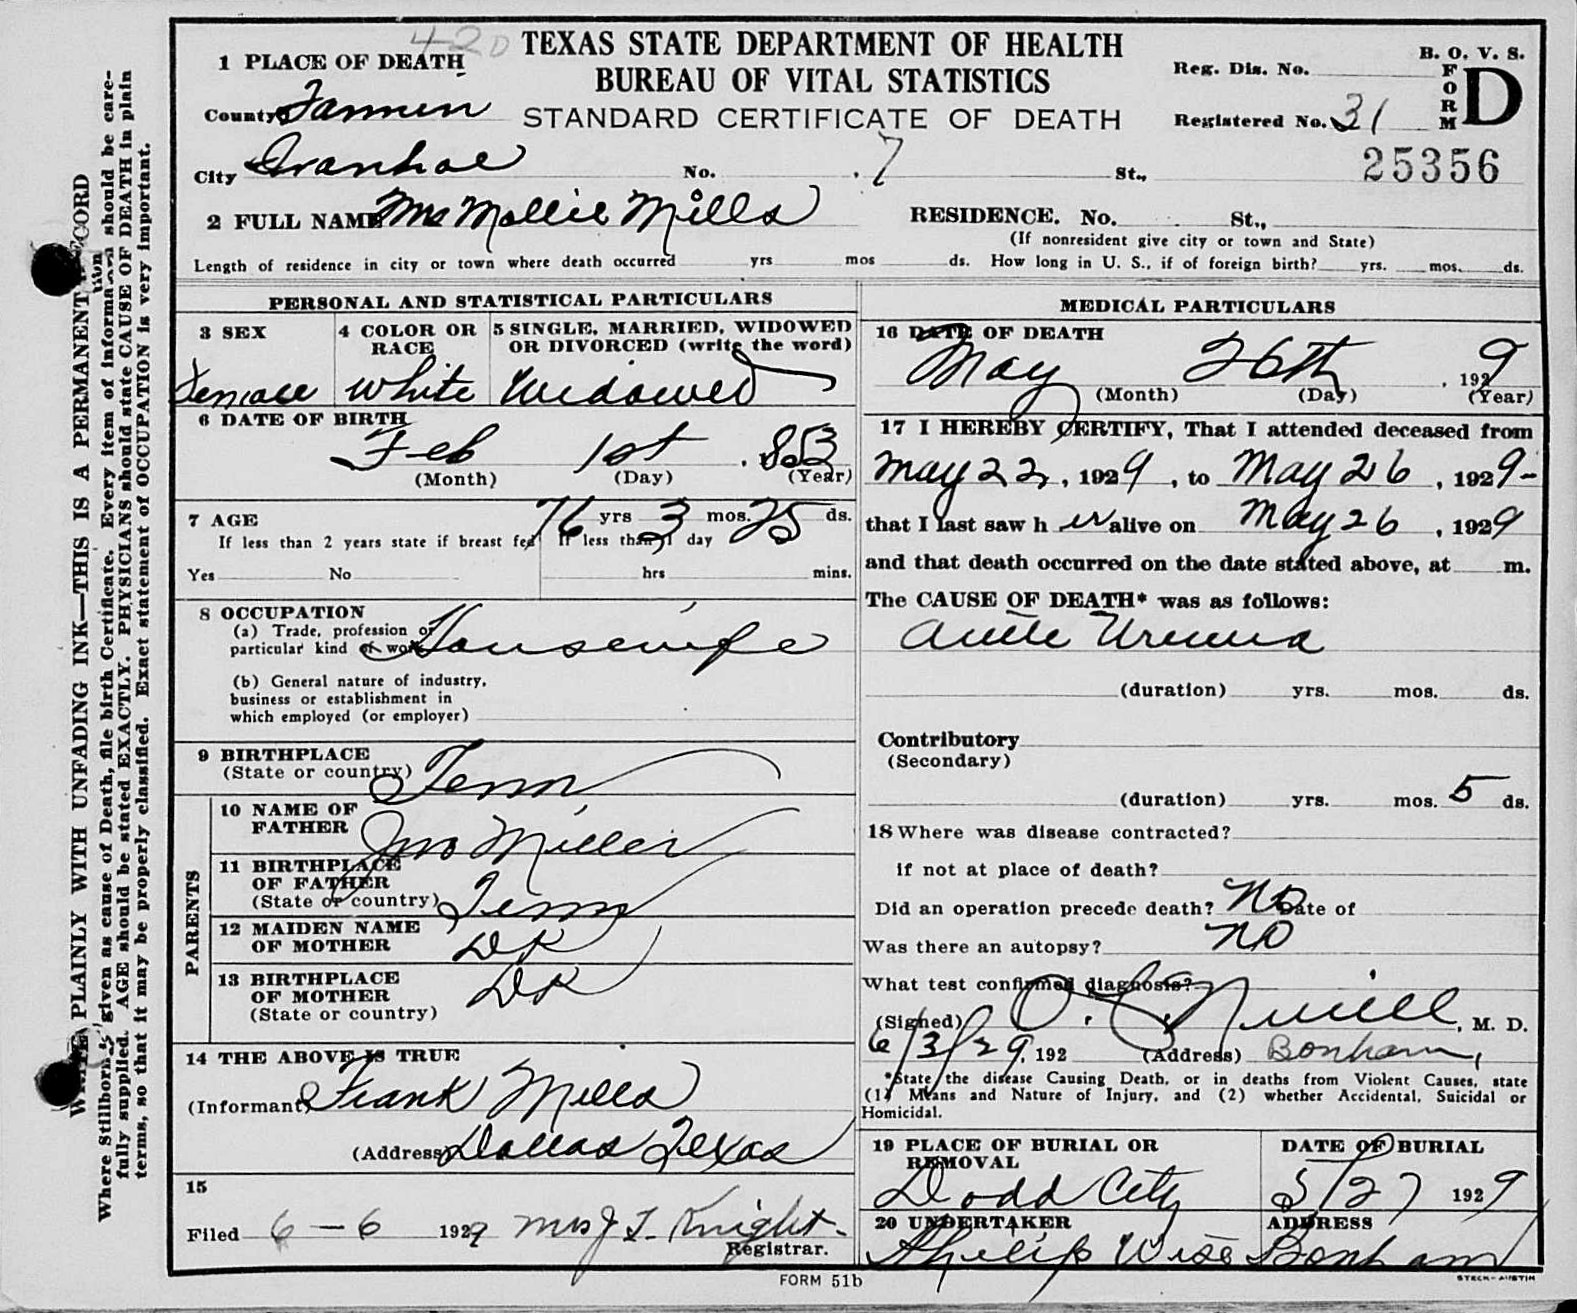 42D
TEXAS STATE DEPARTMENT OF HEALTH
BUREAU OF VITAL STATISTICS
STANDARD CERTIFICATE OF DEATH
B. O. V. S.
FORM D
Reg. Dis. No.
Registered No. 31
25356
1 PLACE OF DEATH
County Fannin
City Ivanhoe No. 7 St.,
2 FULL NAME Mrs Mollie Mills RESIDENCE. No. St.,
(If nonresident give city or town and State)
Length of residence in city or town where death occurred yrs mos ds. How long in U. S., if of foreign birth? yrs. mos. ds.
PERSONAL AND STATISTICAL PARTICULARS
3 SEX
Female
4 COLOR OR RACE
White
5 SINGLE, MARRIED, WIDOWED
OR DIVORCED (write the word)
Widowed
6 DATE OF BIRTH
Feb 1st 853
(Month) (Day) (Year)
7 AGE 76 yrs 3 mos. 25 ds.
If less than 2 years state if breast fed If less than 1 day
Yes No hrs mins.
8 OCCUPATION
(a) Trade, profession or
particular kind of work Housewife
(b) General nature of industry,
business or establishment in
which employed (or employer)
9 BIRTHPLACE
(State or country) Tenn
PARENTS
10 NAME OF
FATHER Jno Miller
11 BIRTHPLACE
OF FATHER
(State or country) Tenn
12 MAIDEN NAME
OF MOTHER DK
13 BIRTHPLACE
OF MOTHER DK
(State or country)
14 THE ABOVE IS TRUE
(Informant) Frank Mills
(Address) Dallas Texas
15
Filed 6-6 1929 Mrs J T. Knight
Registrar.
MEDICAL PARTICULARS
16 DATE OF DEATH
May 26th, 1929
(Month) (Day) (Year)
17 I HEREBY CERTIFY, That I attended deceased from
May 22, 1929, to May 26, 1929-
that I last saw h er alive on May 26, 1929
and that death occurred on the date stated above, at m.
The CAUSE OF DEATH* was as follows:
Acute Uremia
(duration) yrs. mos. ds.
Contributory
(Secondary)
(duration) yrs. mos. 5 ds.
18 Where was disease contracted?
if not at place of death?
Did an operation precede death? No Date of
Was there an autopsy? No
What test confirmed diagnosis?
(Signed) O. C. , M. D.
6/3/29, 192 (Address) Bonham,
*State the disease Causing Death, or in deaths from Violent Causes, state
(1) Means and Nature of Injury, and (2) whether Accidental, Suicidal or
Homicidal.
19 PLACE OF BURIAL OR
REMOVAL
Dodd City
DATE OF BURIAL
5/27 1929
20 UNDERTAKER
Philip Wise
ADDRESS
Bonham
FORM 51b
STECK-AUSTIN
WRITE PLAINLY WITH UNFADING INK—THIS IS A PERMANENT RECORD
Where Stillborn is given as cause of Death, file birth Certificate. Every item of information should be care-
fully supplied. AGE should be stated EXACTLY. PHYSICIANS should state CAUSE OF DEATH in plain
terms, so that it may be properly classified. Exact statement of OCCUPATION is very important.